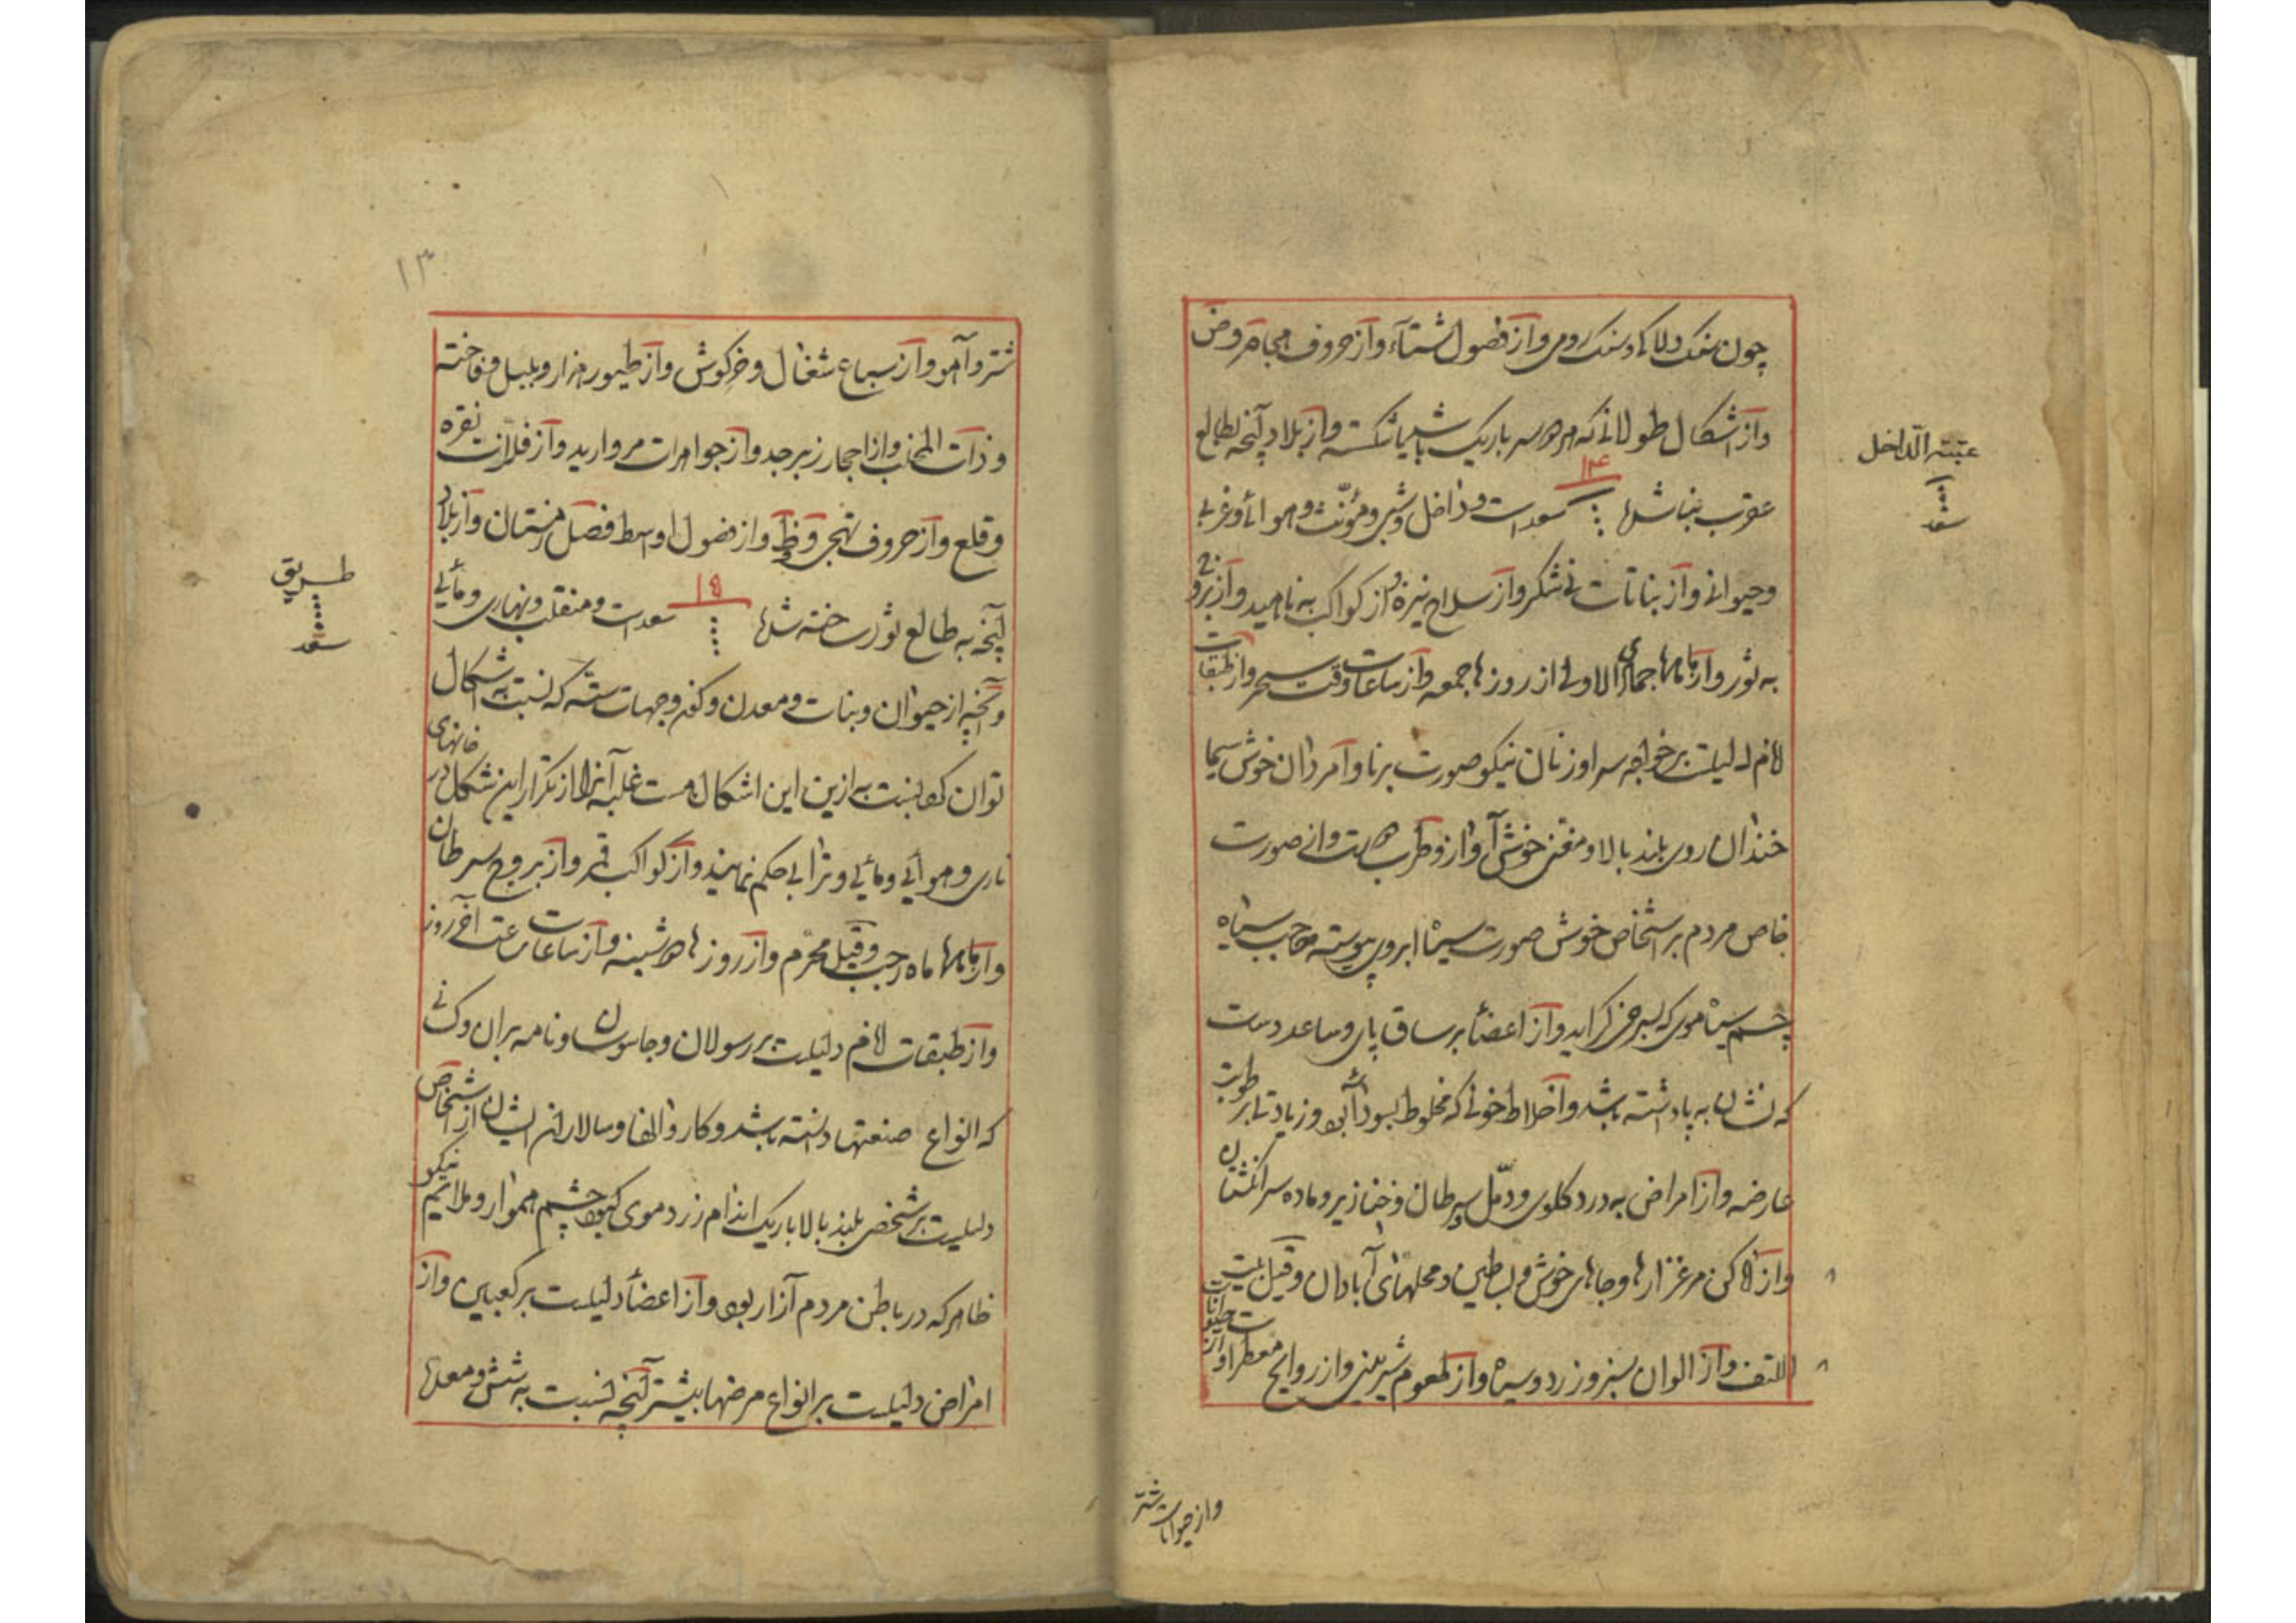 چون سنک ولاکه وسنک رومی وآز فصول شتآء وآز حروف
وآز اشکال طولانی که هر دو سر باریک باشد یا شکسته وآز بلاد آنچه بطالع
عقرب بنا شد
۱۴
سعد است وداخل وشبی ومؤنث وهوائی وغربی
وحیوانی وآز نباتات نی شکر وآز سلاح نیزه وآز کواکب به ناهید وآز بروج
به ثور وآز ماهها جمادی الاولی از روزها جمعه وآز ساعات وقت سحر وآز طبقات
لام دلیلست بر خواجه سرا وزنان نیکو صورت برنا وامردان خوش سیما
خندان روی بلند بالا ومغنی خوش آواز وطرب دوست وازصورت
خاص مردم بر اشخاص خوش صورت سیاه ابروی پیوسته حاجب سیاه
چشم سیاه موی که بسرخی کراید وآز اعضآ بر ساق پای وساعد دست
که نشان به پا داشته باشد وآخلاط خونی که مخلوط بسودا بود وزیادتی رطوبت
عارضه وآز امراض به درد کلوی ودمّل وسرطان وخنازیر وماده سر انکشتان
وآز اماکن مرغزارها وجاهای خوش ولب طین ومحلهای آبادان وقیل بیت
اللتف وآز الوان سبز وزرد وسیاه وآز طعوم شیرینی وآز روایح معطر وآز حیوانات
عتبة الداخل
سعد
وآز حیوانات شتر
۱۳
شتر وآهو وآز سباع شغال وخرکوش وآز طیور هزار وبلبل وفاخته
وذات المخلب وآز احجار زبرجد وآز جواهرات مروارید وآز فلزات نقره
وقلع وآز حروف وآز فصول اوسط فصل زمستان وآز بلاد
آنچه به طالع ثور ساخته شد
۱۵
سعد است ومنقلب ونهاری ومائی
وآنچه از حیوان ونبات ومعدن وکفه وجهات سته که نسبت به اشکال
توان کرد نسبت به ازین این اشکال هست غلبه آنرا از تکرار این شکل در خانهای
ناری وهوائی ومائی وترابی حکم نمایند وآز کواکب قمر وآز بروج سرطان
وآز ماهها ماه رجب وقیل محرّم وآز روزها دوشنبه وآز ساعات ساعت آخر روز
وآز طبقات لام دلیلست بر رسولان وجاسوسان ونامه بران وکسانی
که انواع صنعتها دانسته باشد وکاروانها وسالاران ایشان از اشخاص
دلیلست بر شخص بلند بالا باریک اندام زرد موی کبود چشم هموار وملایم نیکو
ظاهر که در باطن مردم آزار بود وآز اعضآ دلیلست بر کعبین وآز
امراض دلیلست بر انواع مرضها بیشتر آنچه نسبت به شش ومعده
طریق
سعد